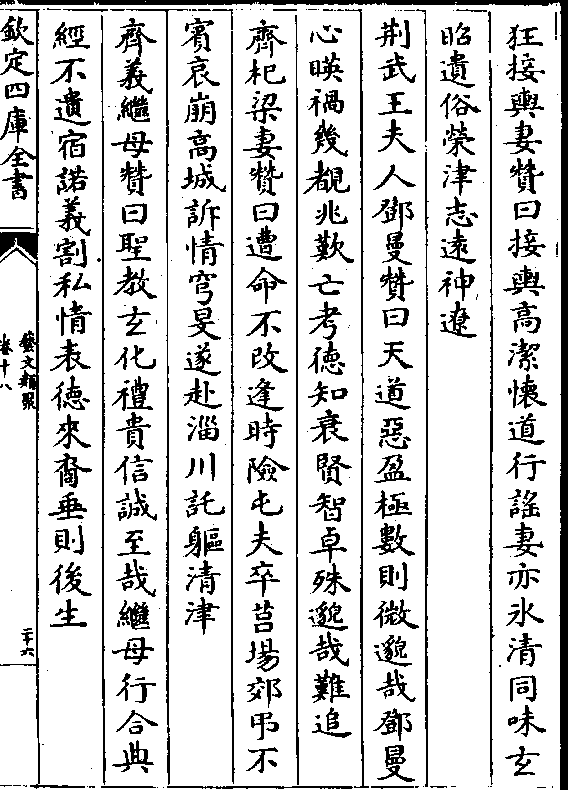 狂接輿妻贊曰接輿高潔懷道行謡妻亦氷清同味玄
昭遺俗榮津志逺神遼
荆武王夫人鄧曼贊曰天道惡盈極數則微邈哉鄧曼
心暎禍幾覩兆歎亡考德知衰賢智卓殊邈哉難追
齊杞梁妻贊曰遭命不改逢時險屯夫卒莒場郊弔不
賓哀崩髙城訴情穹旻遂赴淄川託軀清津
齊義繼母贊曰聖教玄化禮貴信誠至哉繼母行合典
經不遺宿諾義割私情表德來裔垂則後生
欽定四庫全書
藝文類聚
卷十八
二十六